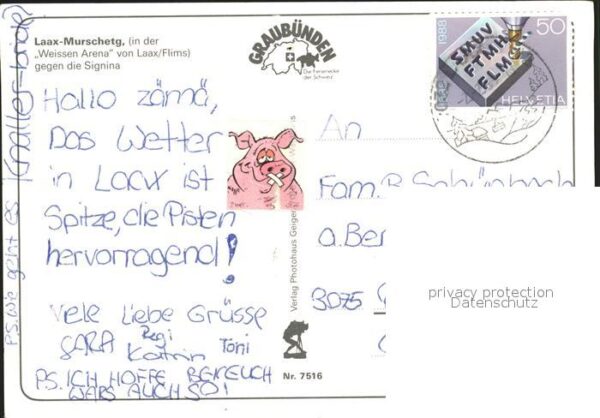 Laax-Murschetg, (in der
„Weissen Arena" von Laax/Flims)
gegen die Signina
GRAUBÜNDEN
Die Ferienecke
der Schweiz
1988
50
SMUV
FTMH
FLM
HELVETIA
Hallo zämä,
Das Wetter
in Laax ist
Spitze, die Pisten
hervorragend!
Viele Liebe Grüsse
SARA Regi
Katrin Toni
PS. ICH HOFFE BEI EUCH
WÄRS AUCH SO!
P.S. Wie geht es
An
Fam. B.
a. Ber
3075
Verlag Photohaus Geiger
Nr. 7516
privacy protection
Datenschutz